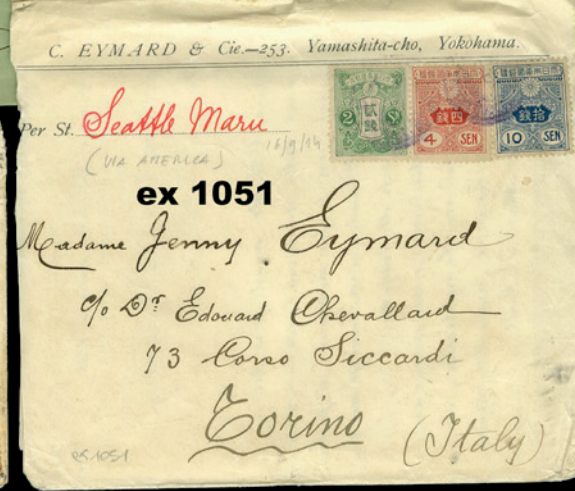 C. EYMARD & Cie.—253. Yamashita-cho, Yokohama.
Per St. Seattle Maru
(VIA AMERICA)
16/9/14
2 Sn
貳錢
4 SEN
四錢
10 SEN
拾錢
ex 1051
Madame Jenny Eymard
c/o Dr Edouard Chevallard
73 Corso Siccardi
Torino
(Italy)
es 1051